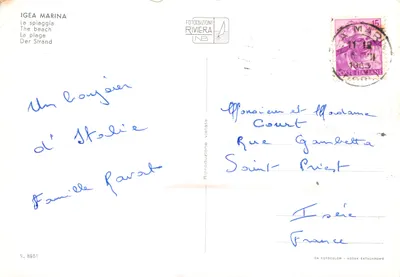 IGEA MARINA
La spiaggia
The beach
La plage
Der Strand
FOTOEDIZIONI
RIVIERA
Un bonjour
d'Italie
Famille Ravat
Monsieur et Madame
Court
Rue Gambetta
Saint Priest
Isère
France
Riproduzione vietata